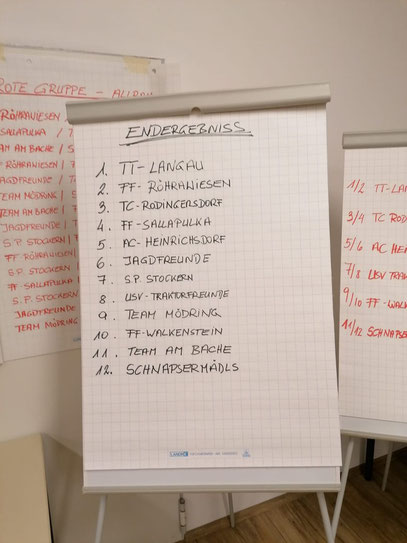 ROTE GRUPPE -
RÖHRAWIESEN /
SALLAPULKA / 7
TEAM AM BACHE / 5
RÖHRAWIESEN / 7
JAGDFREUNDE / 7
TEAM MÖDRING /
TEAM AM BACHE /
JAGDFREUNDE /
S.P. STOCKERN
FF RÖHRAWIESEN
S.P. STOCKERN
FF SALLAPULKA
S.P. STOCKERN
JAGDFREUNDE
TEAM MÖDRING
ENDERGEBNISS
1. TT-LANGAU
2. FF-RÖHRAWIESEN
3. TC-RODINGERSDORF
4. FF-SALLAPULKA
5. AC-HEINRICHSDORF
6. JAGDFREUNDE
7. S.P. STOCKERN
8. USV-TRAKTORFREUNDE
9. TEAM MÖDRING
10. FF-WALKENSTEIN
11. TEAM AM BACHE
12. SCHNAPSERMÄDLS
1/2 TT-LAN
3/4 TC ROD
5/6 AC HEIN
7/8 USV TRA
9/10 FF-WAL
11/12 SCHNAPSE